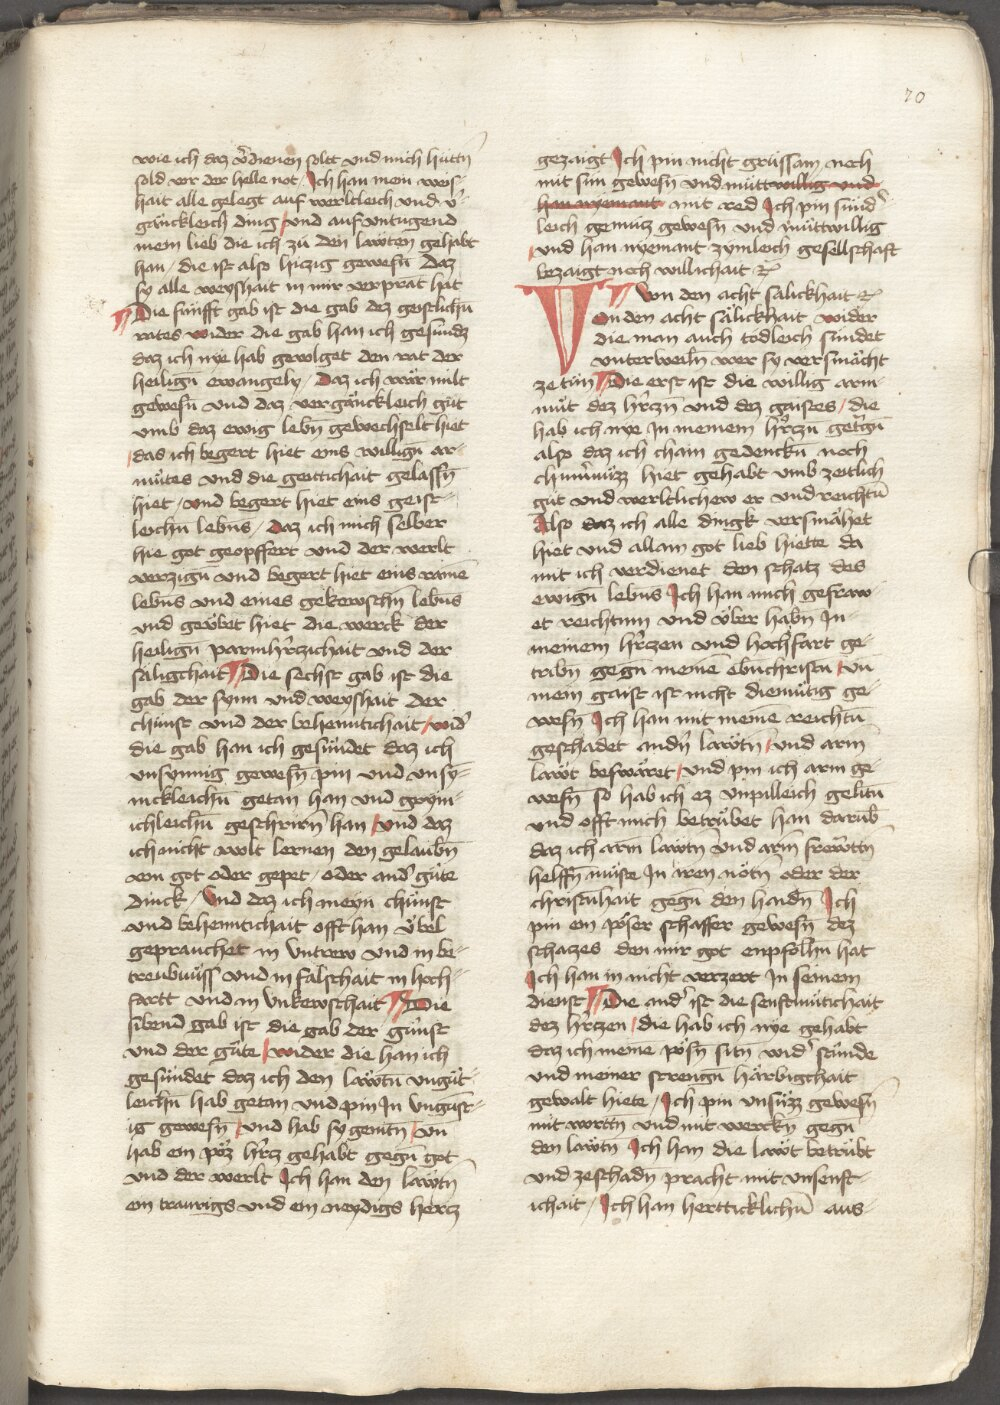 70
wie ich daz v̾dienen solt vnd mich hüttñ
sold vor der helle not / Ich han mein weis-
hait alle gelegt auf werltleich vnd v̾-
gänckleich ding / vnd auf vntugend
mein lieb die ich zu den läwten gehabt
han / die ist also hiczig gewesñ daz
sy alle weyshait in mir verprant hat
¶ Die fünfft gab ist die gab dez geistlichñ
rates wider die gab han ich gesündt
daz ich nye hab geuolget den rat der
heiligñ ewangely / Daz ich wär milt
gewesñ vnd daz vergänckleich güt
vmb daz ewig lebñ gewechselt hiet
/ das ich begert hiet eins willigñ ar-
mütes vnd die geitichait gelassñ
hiet / vnd begert hiet eins geist-
leichñ lebñs / Daz ich mich selber
hie got geopffert vnd der werlt
verzigñ vnd begert hiet eins raine
lebñs vnd eines gekewschñ lebñs
vnd geübet hiet die werck der
heiligñ parmh̾rczichait vnd der
säligchait ¶ Die sechst gab ist die
gab der synn vnd weyshait der
chunst vnd der behenntichait / wid̾
die gab han ich gesündet daz ich
vnsynnig gewesñ pin vnd vnsy-
nickleichñ getan han vnd grym-
ichleichñ geschrirñ han / vnd daz
ich nicht wolt lernen den gelaubñ
von got oder gepet / oder and̾ güte
dinck / Vnd daz ich meyn chünst
vnd behenntichait offt han v̈bel
geprauchet in vntrew vnd in be-
treubnüss vnd in falschait in hoch-
fartt vnd in vnkewschait ¶ Die
sibend gab ist die gab der günst
vnd der güte / wider die han ich
gesündet daz ich den läwtñ vngüt-
leichñ hab getan vnd pin In vngünst-
ig gewesñ / vnd hab sy genitñ / vñ
hab ein pöz h̾rcz gehabt gegñ got
vnd der werlt Ich han den läwtñ
ein traurigs vnd ein neydigs hercz
gezaigt Ich pin nicht grüssam noch
mit sün gewesñ vnd müttwillig vnd
han nyemant mit red Ich pin sünd̾
leich gemütz gewesñ vnd müttwillig
/ vnd han nyemant zymleich gesellschaft
bezaigt noch willichait ꝛc
¶ Von den acht sälickhait ꝛc
Von den acht sälickhait wider
die man auch tödleich sündet
vnterweilñ wer sy versmächt
ze tün ¶ Die erst ist die willig arm-
müt dez h̾rczñ vnd dez gaistes / die
hab ich nye In meinem h̾rczñ getrgñ
also daz ich chain gedenckñ noch
chumnüzz hiet gehabt vmb zeitlich
güt vnd werltlichew er vnd reichtũ
Also daz ich alle dingk versmähet
hiet vnd allain got lieb hiette da
mit ich verdienet den schatz des
ewigñ lebñs Ich han mich gefraw-
et reichtum vnd v̈ber habñ In-
meinem h̾rczen vnd hochfart ge-
tribñ gegñ meinē ebñchristñ / vñ
mein gaist ist nicht diemütig ge-
wesñ Ich han mit meinē reichtũ
geschadet andñ läwtñ / vnd arm
läwt beswäret / vnd pin ich arm ge-
wesñ so hab ich ez vnpilleich gelitñ
vnd offt mich betrübet han darub̃
daz ich arm läwtñ vnd arm fräwttñ
helffñ müste In iren nötñ oder der
christñhait gegñ den haidñ Ich
pin ein pöser schaffer gewesñ dez
schaczes den mir got enpfolhñ hat
Ich han in nicht verzert In seinem
dienst ¶ Die and̾ ist die senftmütichait
dez h̾rczen / die hab ich nye gehabt
daz ich meine pösñ sitñ wid̾ stünde
vnd meiner strengñ härbigchait
gewalt hiete / Ich pin vnsüzz gewesñ
mit worttñ vnd mit werckñ gegñ
den läwtñ Ich han die läwt betrübt
vnd zeschadñ pracht mit vnsenft-
ichait / Ich han hertticklichñ aus-